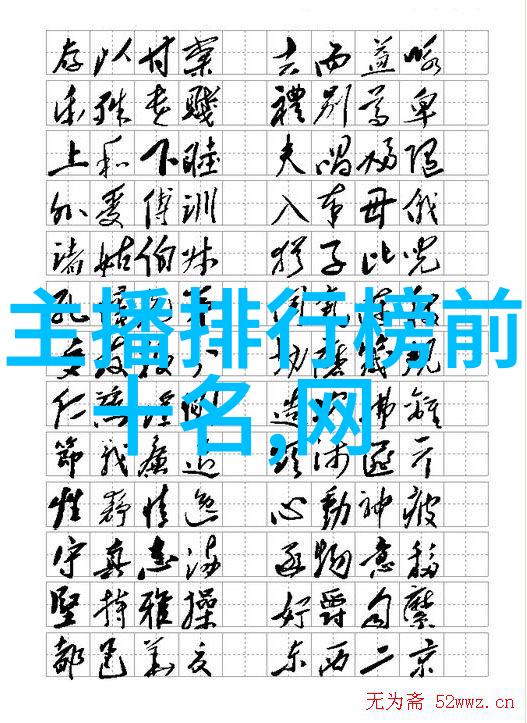 存以甘棠 去而益咏
乐殊贵贱 礼别尊卑
上和下睦 夫唱妇随
外受傅训 入奉母仪
诸姑伯叔 犹子比儿
主播排行榜前
十名,网
仁慈隐恻 造次弗离
節義廉退 颠沛匪亏
性静情逸 心動神疲
守真志满 逐物意移
坚持雅操 好爵自縻
都邑华夏 东西二京
无为斋 52wwz.cn